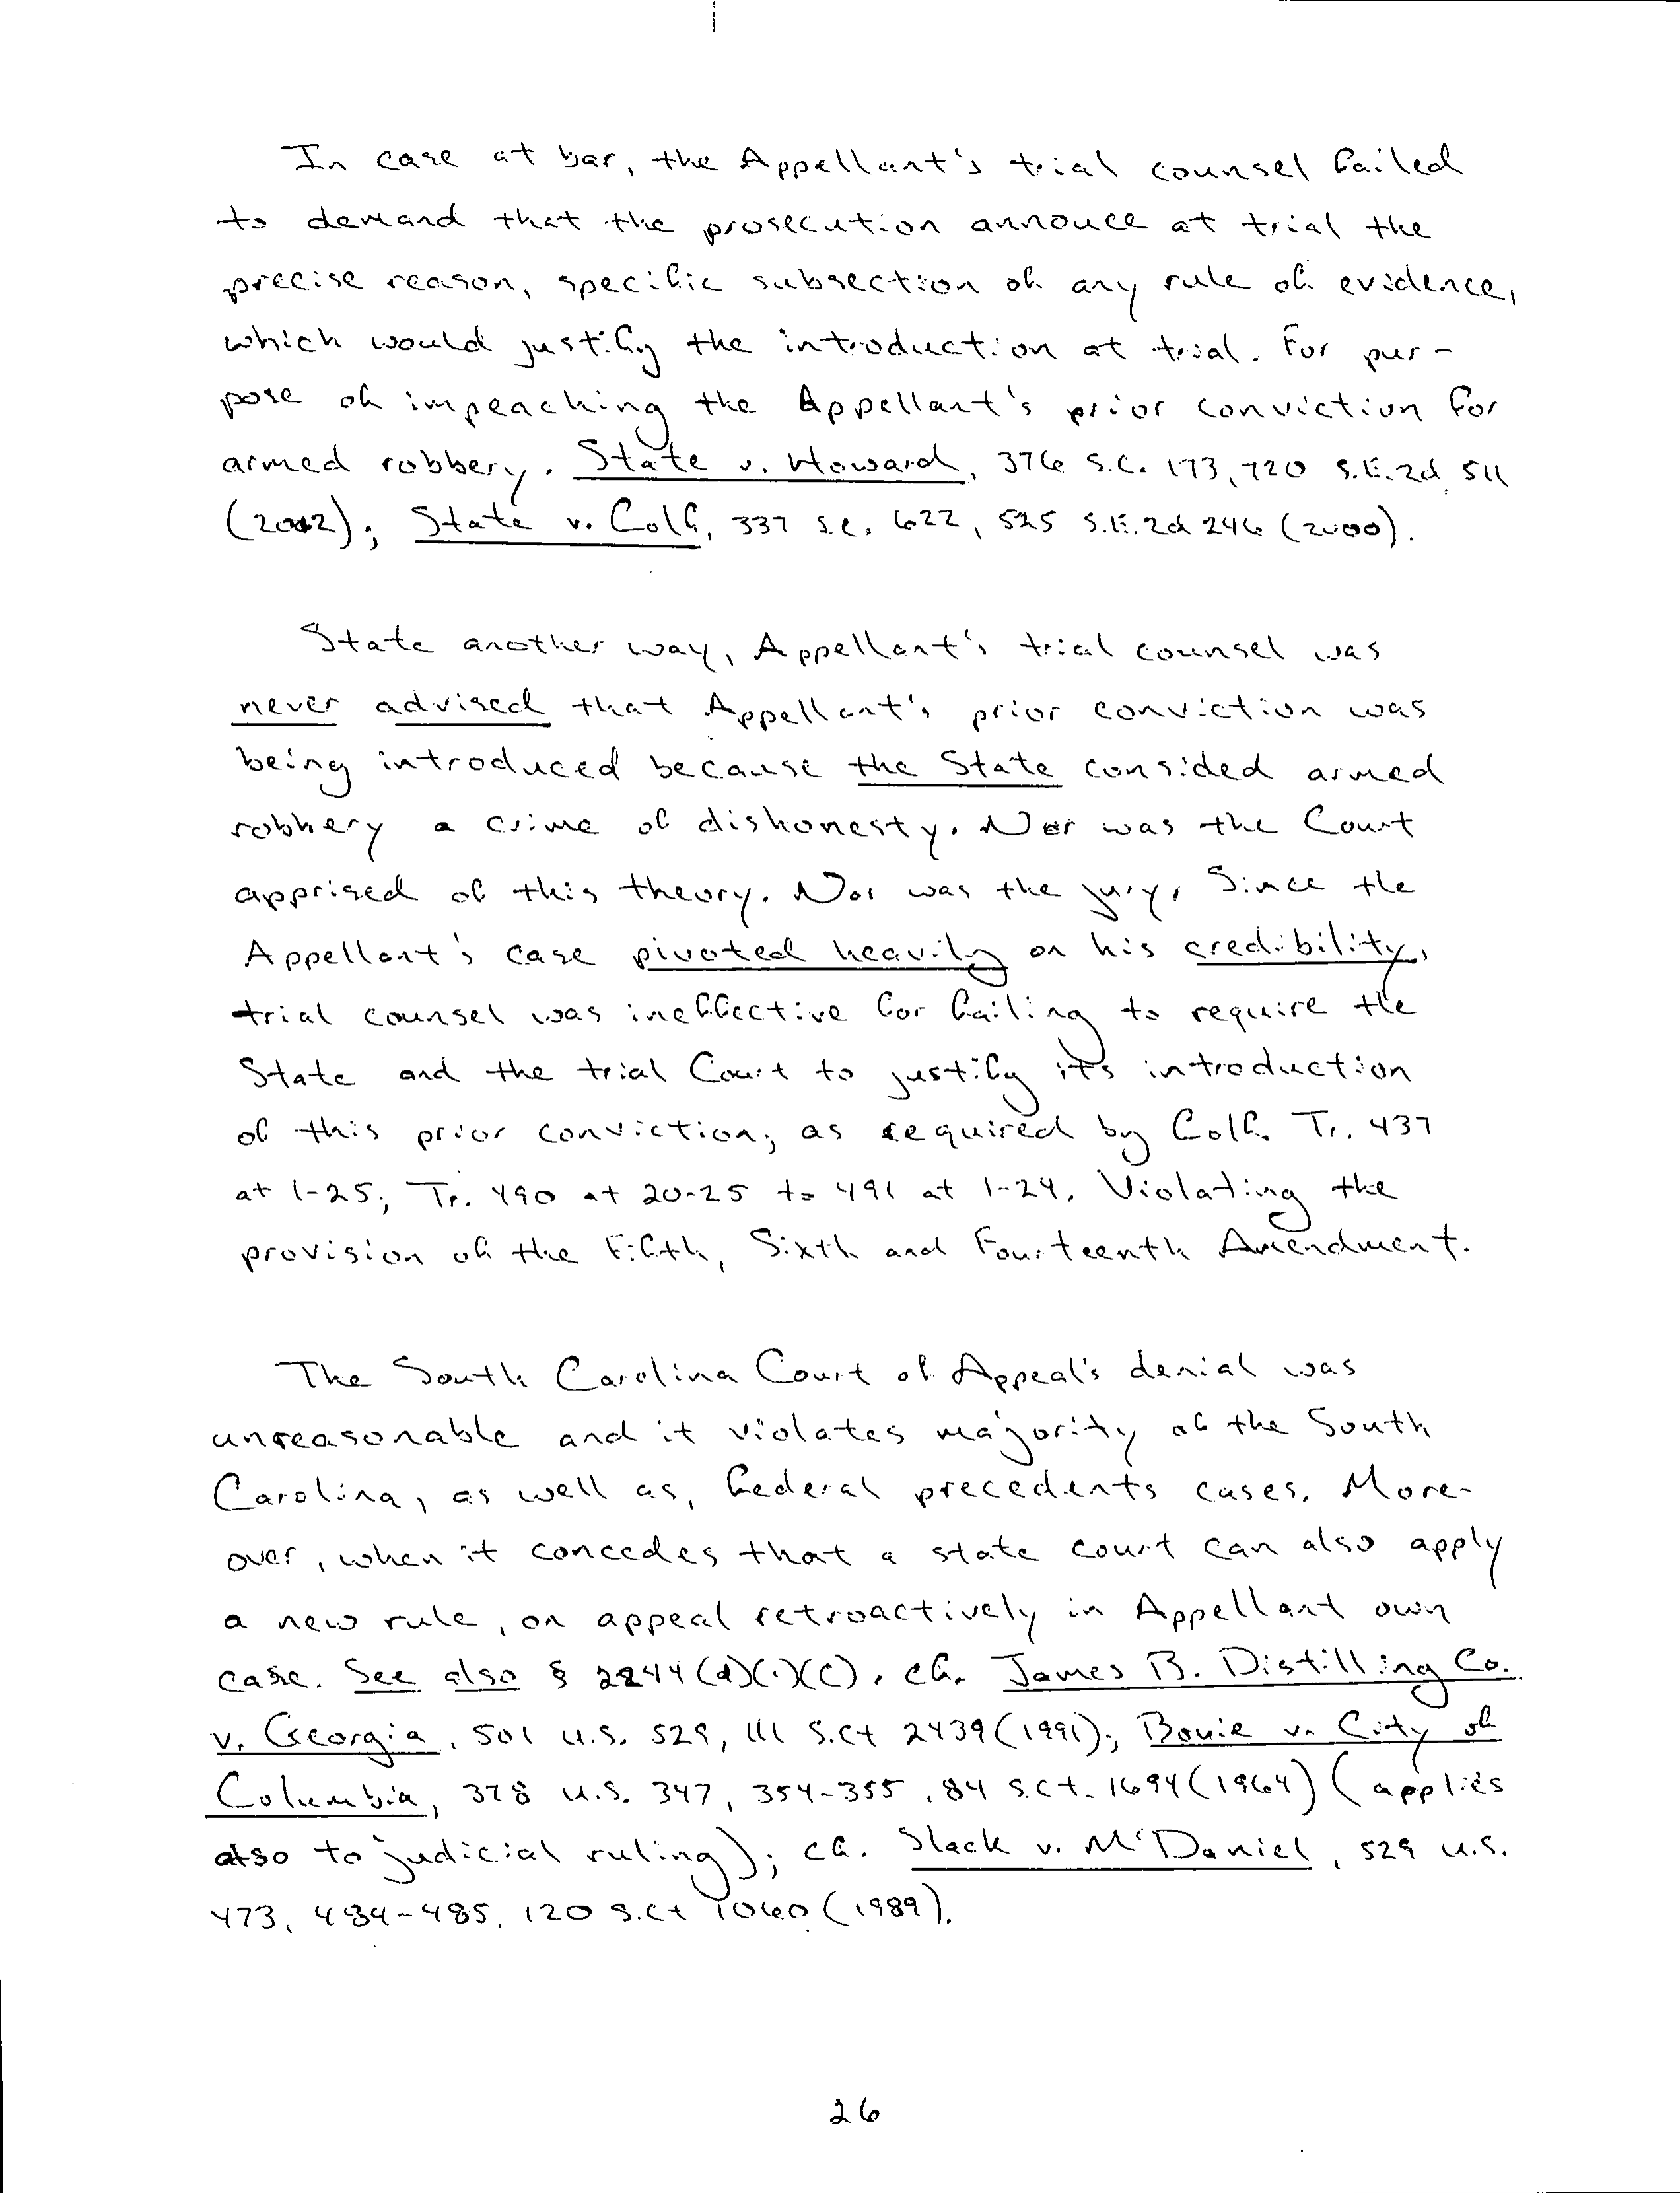 In case at bar, the Appellant's trial counsel failed
to demand that the prosecution annouce at trial the
precise reason, specific subsection of any rule of evidence,
which would justify the introduction at trial. For pur-
pose of impeaching the Appellant's prior conviction for
armed robbery. State v. Howard, 376 S.C. 173, 720 S.E.2d 511
(2012); State v. Colf, 337 S.C. 622, 525 S.E.2d 246 (2000).
State another way, Appellant's trial counsel was
never advised that Appellant's prior conviction was
being introduced because the State consided armed
robbery a crime of dishonesty. Nor was the Court
apprised of this theory. Nor was the jury. Since the
Appellant's case pivoted heavily on his credibility,
trial counsel was ineffective for failing to require the
State and the trial Court to justify it's introduction
of this prior conviction; as required by Colf. Tr. 437
at 1-25; Tr. 490 at 20-25 to 491 at 1-24. Violating the
provision of the Fifth, Sixth and Fourteenth Amendment.
The South Carolina Court of Appeal's denial was
unreasonable and it violates majority of the South
Carolina, as well as, federal precedents cases. More-
over, when it concedes that a state court can also apply
a new rule, on appeal retroactively in Appellant own
case. See also § 2244(d)(1)(C). cf. James B. Distilling Co.
v. Georgia, 501 U.S. 529, 111 S.Ct 2439 (1991); Bouie v. City of
Columbia, 378 U.S. 347, 354-355, 84 S.Ct. 1694 (1964) (applies
also to judicial ruling); cf. Slack v. M'Daniel, 529 U.S.
473, 484-485, 120 S.Ct 1060 (1989).
26